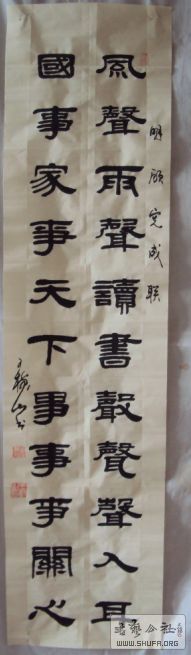 明顾宪成联
風聲雨聲讀書聲聲聲入耳
國事家事天下事事事關心
书艺公社
www.SHUFA.ORG